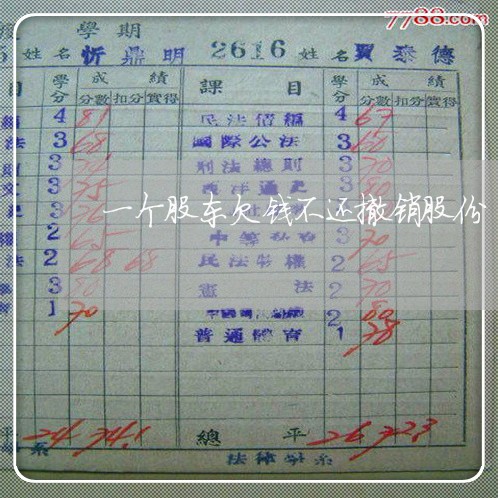 7788.com
學期
姓名 忻鼎明 2616 姓名 賈泰德
目 學分 成績 課目 學分 成績
分數 扣分 實得 分數 扣分 實得
4 81 民法債編 4 67
法 3 68 國際公法 3 60
則 3 刑法總則 3 70
文 3 75 西洋通史 3
3 76 3
一个股东欠钱不还撤销股份
權 2 65 3 70
法 2 68 68 民法物權 2 65
3 80 憲法 2 70
1 70 2 80
普通體育 1 78
平 24 74.1 總平 26 72.3
系 法律學系